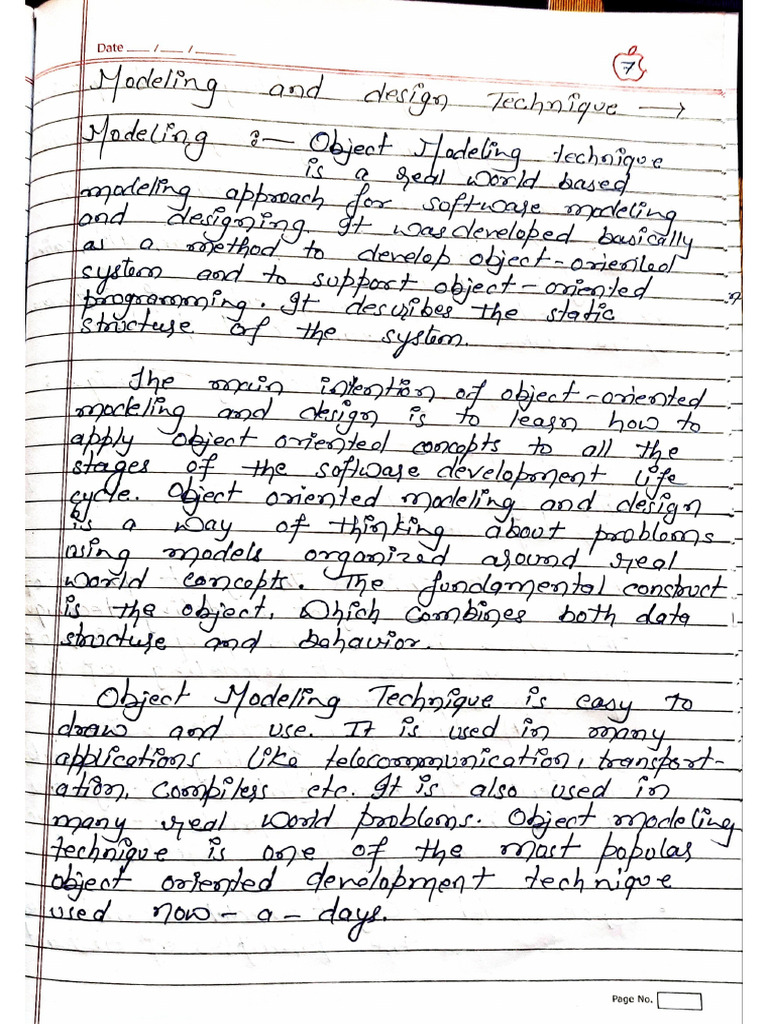 Date ___ / ___ / ___
7
Modeling and design Technique →
Modeling :- Object Modeling technique
is a real world based
modeling approach for software modeling
and designing. It was developed basically
as a method to develop object-oriented
system and to support object-oriented
programming. It describes the static
structure of the system.
The main intention of object-oriented
modeling and design is to learn how to
apply object oriented concepts to all the
stages of the software development life
cycle. Object oriented modeling and design
is a way of thinking about problems
using models organized around real
world concepts. The fundamental construct
is the object, which combines both data
structure and behavior.
Object Modeling Technique is easy to
draw and use. It is used in many
applications like telecommunication, transport-
ation, compilers etc. It is also used in
many real world problems. Object modeling
technique is one of the most popular
object oriented development technique
used now-a-days.
Page No.